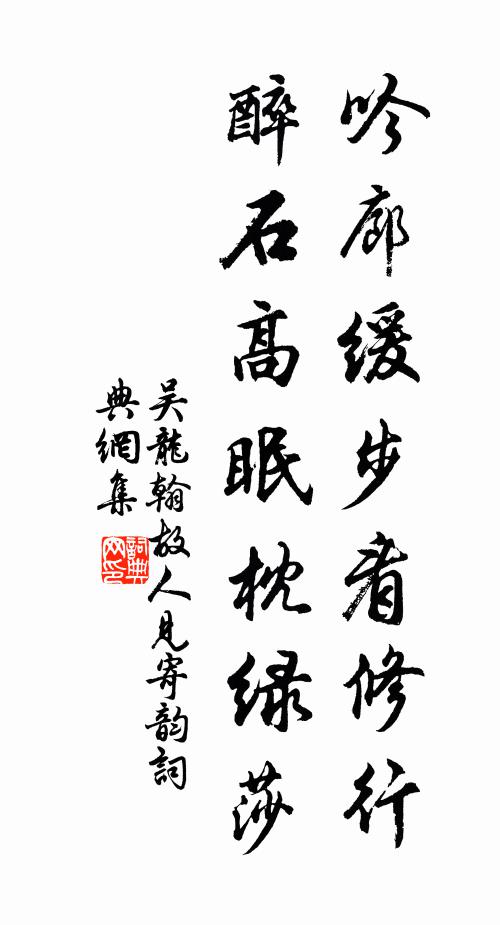 吟廊缓步看修行
醉石高眠枕绿莎
吴龍翰故人見寄韵詞
典網集
詞典
网印